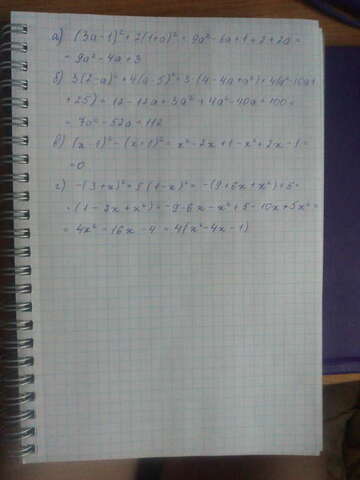 а) (3a-1)²+2(1+a)² = 9a²-6a+1+2+2a=
= 9a²-4a+3
б) 3(2-a)²+4(a-5)²=3·(4-4a+a²)+4(a²-10a+
+25) = 12-12a+3a²+4a²-40a+100=
= 7a²-52a+112
в) (x-1)²-(x+1)² = x²-2x+1-x²+2x-1=
=0
г) -(3+x)²+5(1-x)² = -(9+6x+x²)+5·
·(1-2x+x²)=-9-6x-x²+5-10x+5x²=
= 4x²-16x-4=4(x²-4x-1)